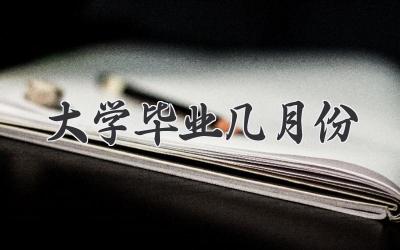 大学毕业几月份